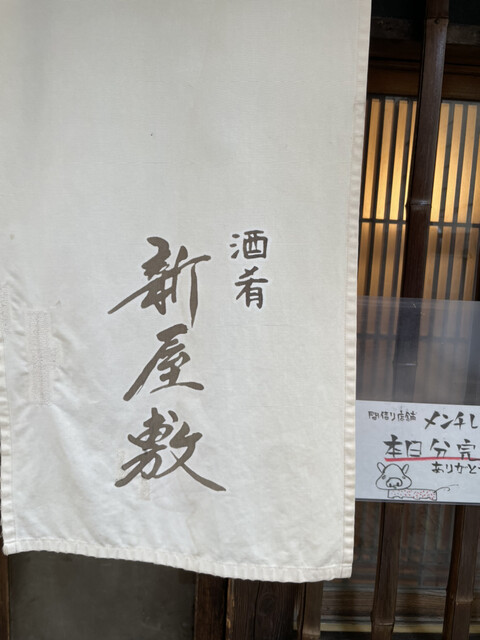 酒肴
新屋敷
間借り店舗 メンチし
本日分完
ありがと